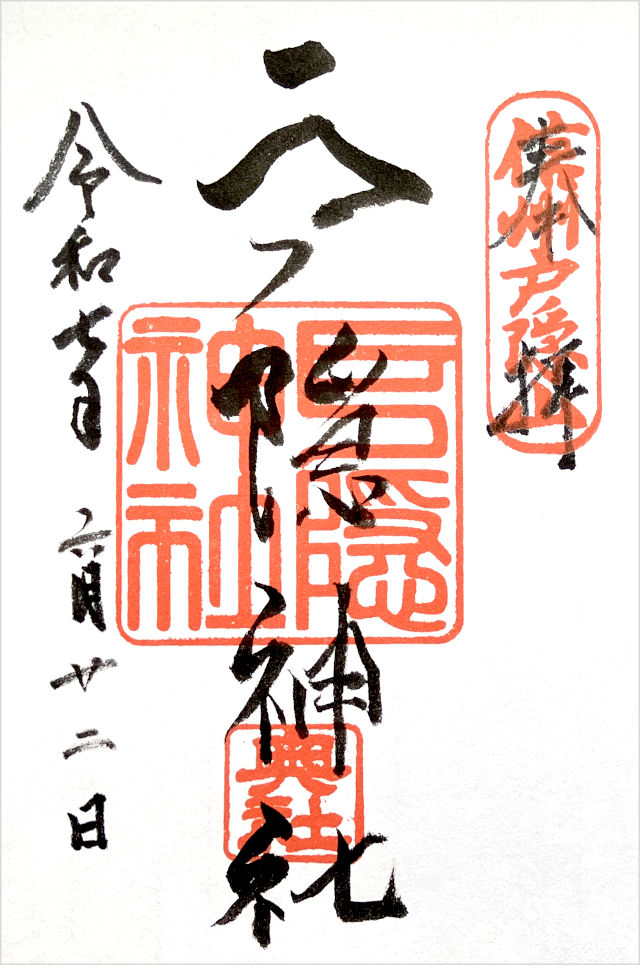 奉拝
信州戸隠山
戸隠神社
戸隠神社
奥社
令和七年 六月廿二日